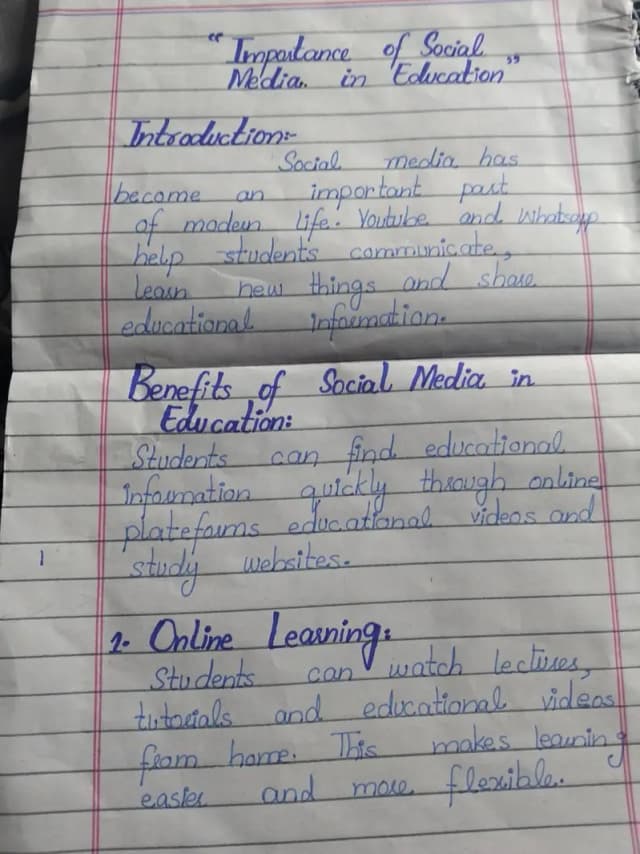 “Importance of Social
Media in Education”
Introduction:-
Social media has
become an important part
of modern life. Youtube and Whatsapp
help students communicate,
learn new things and share
educational information.
Benefits of Social Media in
Education:
Students can find educational
information quickly through online
plateforms educational videos and
1 study websites.
1. Online Learning:
Students can watch lectures,
tutorials and educational videos
from home. This makes learning
easier and more flexible.